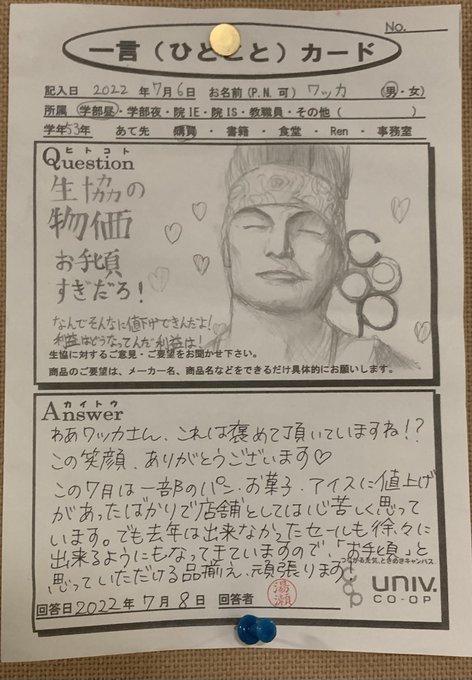 No.
一言（ひとこと）カード
記入日 2022 年 7月 6日 お名前(P.N.可) ワッカ (男・女)
所属 学部昼・学部夜・院IE・院IS・教職員・その他（ ）
学年 53年 あて先 購買 ・ 書籍 ・ 食堂 ・ Ren ・ 事務室
ヒトコト
Question
生協の
物価
お手頃
すぎだろ！
なんでそんなに値下げできんだよ！
利益はどうなってんだ利益は！
coop
生協に対するご意見・ご要望をお聞かせ下さい。
商品のご要望は、メーカー名、商品名などをできるだけ具体的にお願いします。
カイトウ
Answer
わあワッカさん、これは褒めて頂いていますね!?
この笑顔、ありがとうございます♡
この7月は一部のパン、お菓子、アイスに値上げ
があったばかりで店舗としては心苦しく思って
います。でも去年は出来なかったセールも徐々に
出来るようにもなってきていますので、「お手頃」と
思っていただける品揃え、頑張ります！
つながる元気、ときめきキャンパス
coop UNIV.
CO-OP
回答日 2022年 7月 8日 回答者 湯瀬